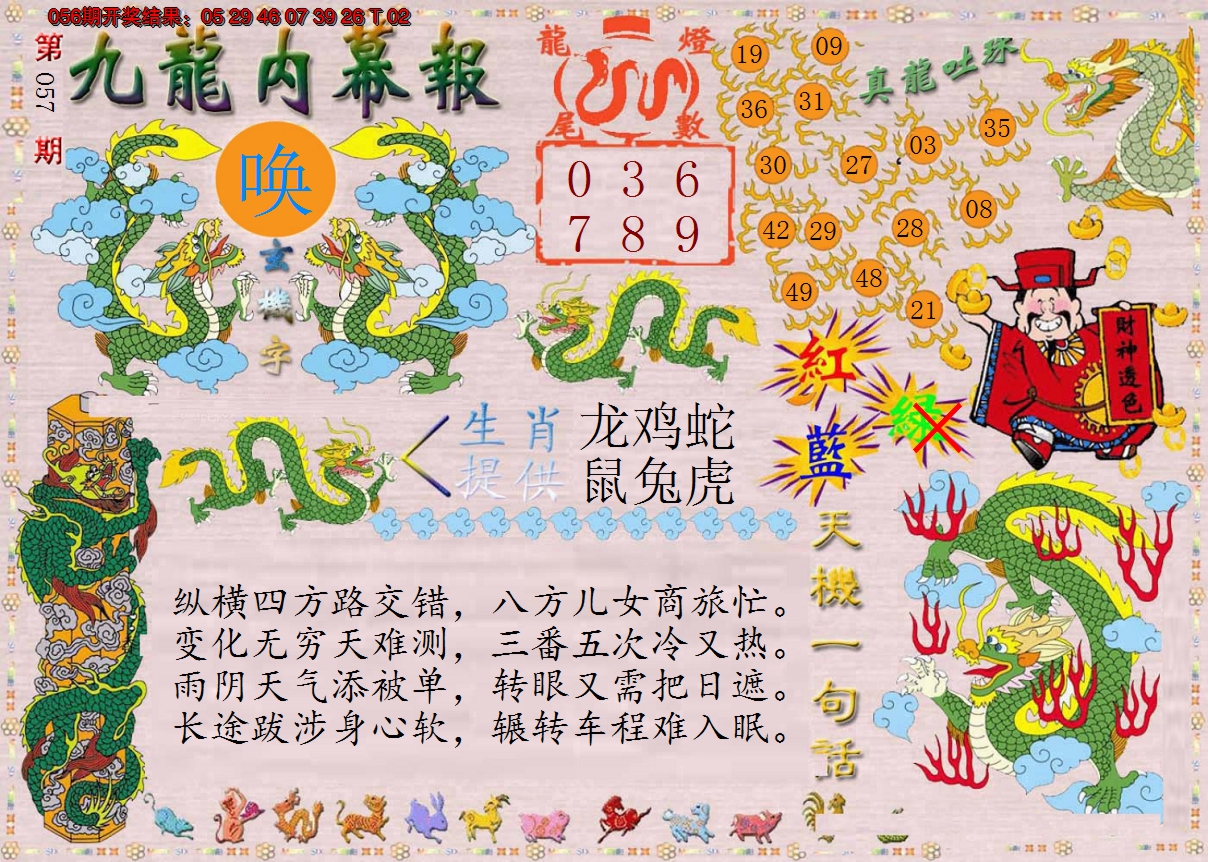 056期开奖结果：05 29 46 07 39 26 T 02
第057期
九龍内幕報
唤
玄機字
龍燈
尾數
0 3 6
7 8 9
真龍吐珠
19 09
36 31
35
03
30 27
08
42 29 28
48
49
21
財神透色
紅
綠
藍
生肖 龙鸡蛇
提供 鼠兔虎
天機一句話
纵横四方路交错，八方儿女商旅忙。
变化无穷天难测，三番五次冷又热。
雨阴天气添被单，转眼又需把日遮。
长途跋涉身心软，辗转车程难入眠。